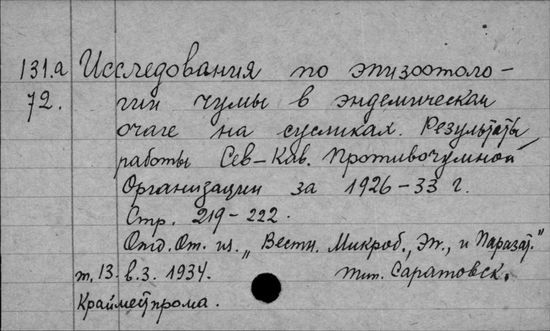 131.а Исследования по эпизоотоло-
72. гии чумы в эндемическом
очаге на сусликах. Результаты
работы Сев-Кав. Противочумной
Организации за 1926-33 г.
Стр. 219-222.
Отд. От. из „Вестн. Микроб., Эп., и Паразат."
т. 13. в. 3. 1934. тип. Саратовск.
Крайместпрома.